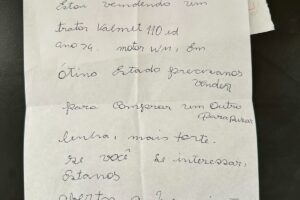 Estou vendendo um
trator Valmet 110 id
ano 79. motor WM, Em
ótino Estado precisanos
vender
para comprar um outro
para puxar
lenha, mais forte.
se você se interessar,
Estanos
abertos a